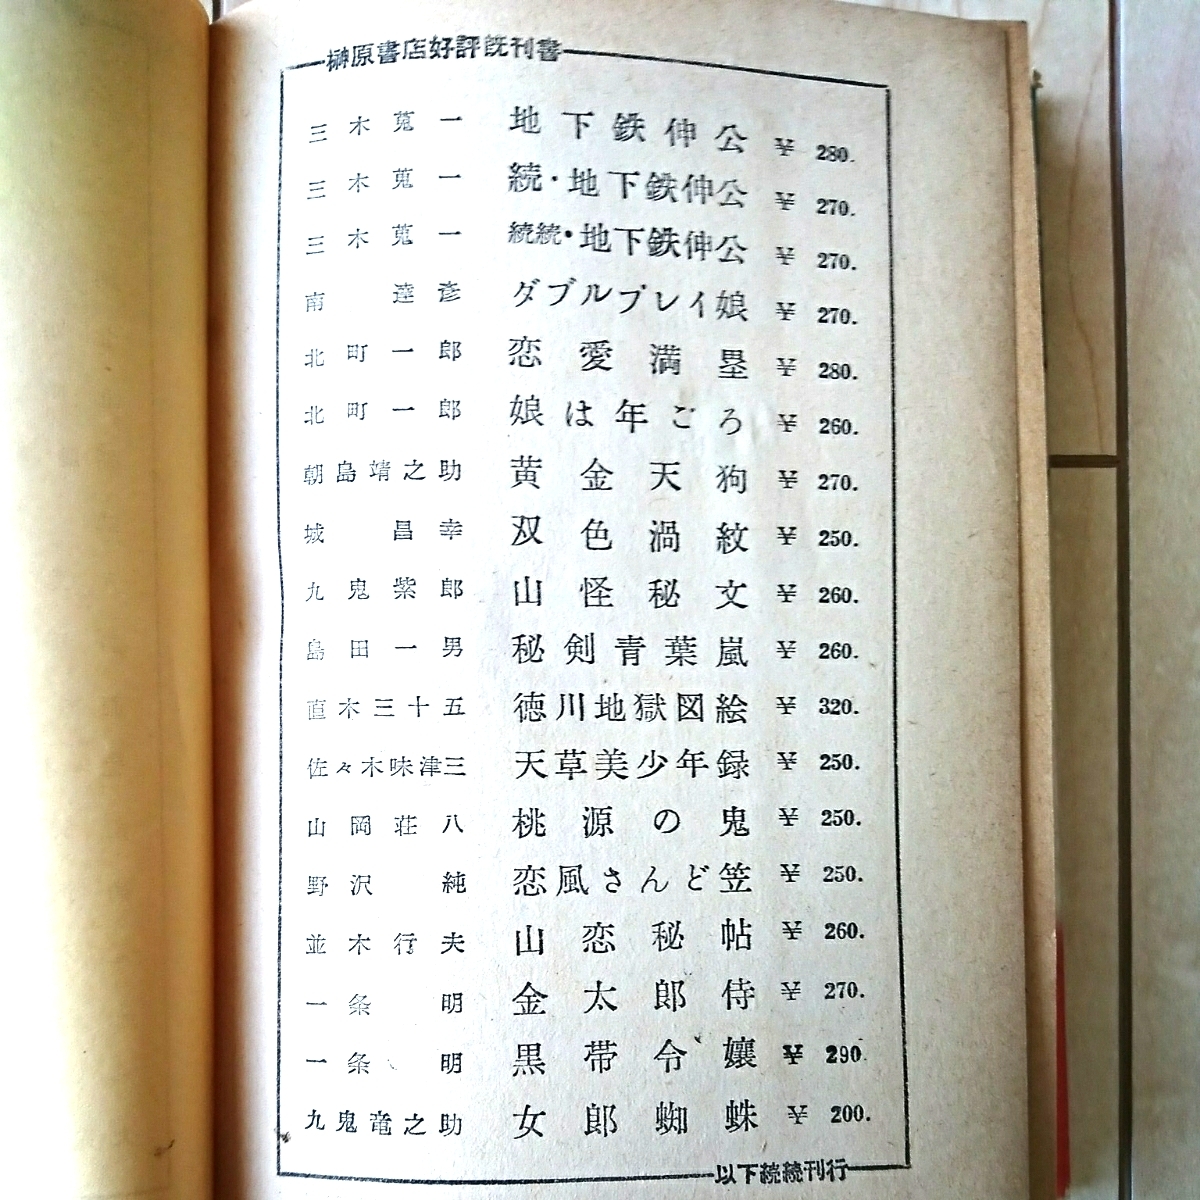 榊原書店好評既刊書
三木蒐一 地下鉄伸公 ¥ 280.
三木蒐一 続・地下鉄伸公 ¥ 270.
三木蒐一 続続・地下鉄伸公 ¥ 270.
南達彦 ダブルプレイ娘 ¥ 270.
北町一郎 恋愛満塁 ¥ 280.
北町一郎 娘は年ごろ ¥ 260.
朝島靖之助 黄金天狗 ¥ 270.
城昌幸 双色渦紋 ¥ 250.
九鬼紫郎 山怪秘文 ¥ 260.
島田一男 秘剣青葉嵐 ¥ 260.
直木三十五 徳川地獄図絵 ¥ 320.
佐々木味津三 天草美少年録 ¥ 250.
山岡荘八 桃源の鬼 ¥ 250.
野沢純 恋風さんど笠 ¥ 250.
並木行夫 山恋秘帖 ¥ 260.
一条明 金太郎侍 ¥ 270.
一条明 黒帯令嬢 ¥ 290.
九鬼竜之助 女郎蜘蛛 ¥ 200.
以下続続刊行